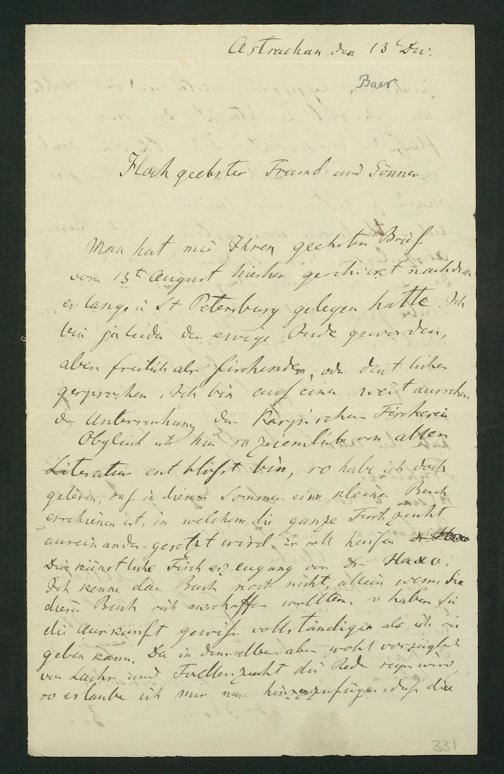 Astrachan, den 13t Dec.
Baer
Hochgeehrter Freund und Gönner.
Man hat mir Ihren geehrten Brief
vom 13t August hierher geschickt nachdem
er lange in St Petersburg gelegen hatte. Ich
bin ja leider der ewige Jude geworden,
aber freilich als fischender, oder deutlicher
gesprochen. Ich bin auf einer weit aussehen
d Untersuchung der Kaspischen Fischerei
Obgleich ich hier so ziemlich von allen
Literatur entblößt bin, so habe ich doch
gelesen, daß in diesem Sommer eine kleine Buch
erschienen ist, in welchem die ganze Fischzucht
auseinander gesetzt wird. Es soll heißen
Die künstliche Fischerzeugung von Dr Haxo.
Ich kenne das Buch noch nicht, allein wenn Sie
dieses Buch sich anschaffen wollten, so haben Sie
die Auskunft gewiß vollständiger als ich sie
geben kann. Da in demselben aber wohl vorzüglich
von Lachs und Forellenzucht die Rede seyn wird
so erlaube ich mir nur hinzuzufügen, daß die
331